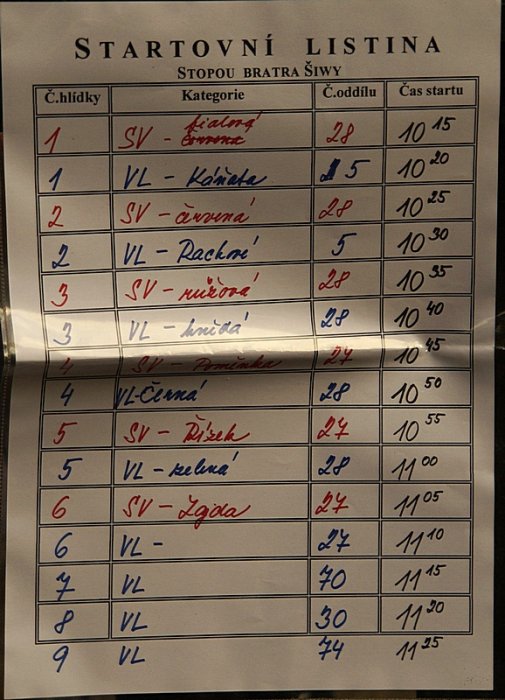 STARTOVNÍ LISTINA
STOPOU BRATRA ŠIWY
Č.hlídky Kategorie Č.oddílu Čas startu
1 SV - fialová 28 10 15
1 VL - Káňata 5 10 20
2 SV - červená 28 10 25
2 VL - 5 10 30
3 SV - růžová 28 10 35
3 VL - hnědá 28 10 40
4 SV - Pomněnka 27 10 45
4 VL-Černá 28 10 50
5 SV - Řízek 27 10 55
5 VL - zelená 28 11 00
6 SV - Zajda 27 11 05
6 VL - 27 11 10
7 VL 70 11 15
8 VL 30 11 20
9 VL 74 11 25